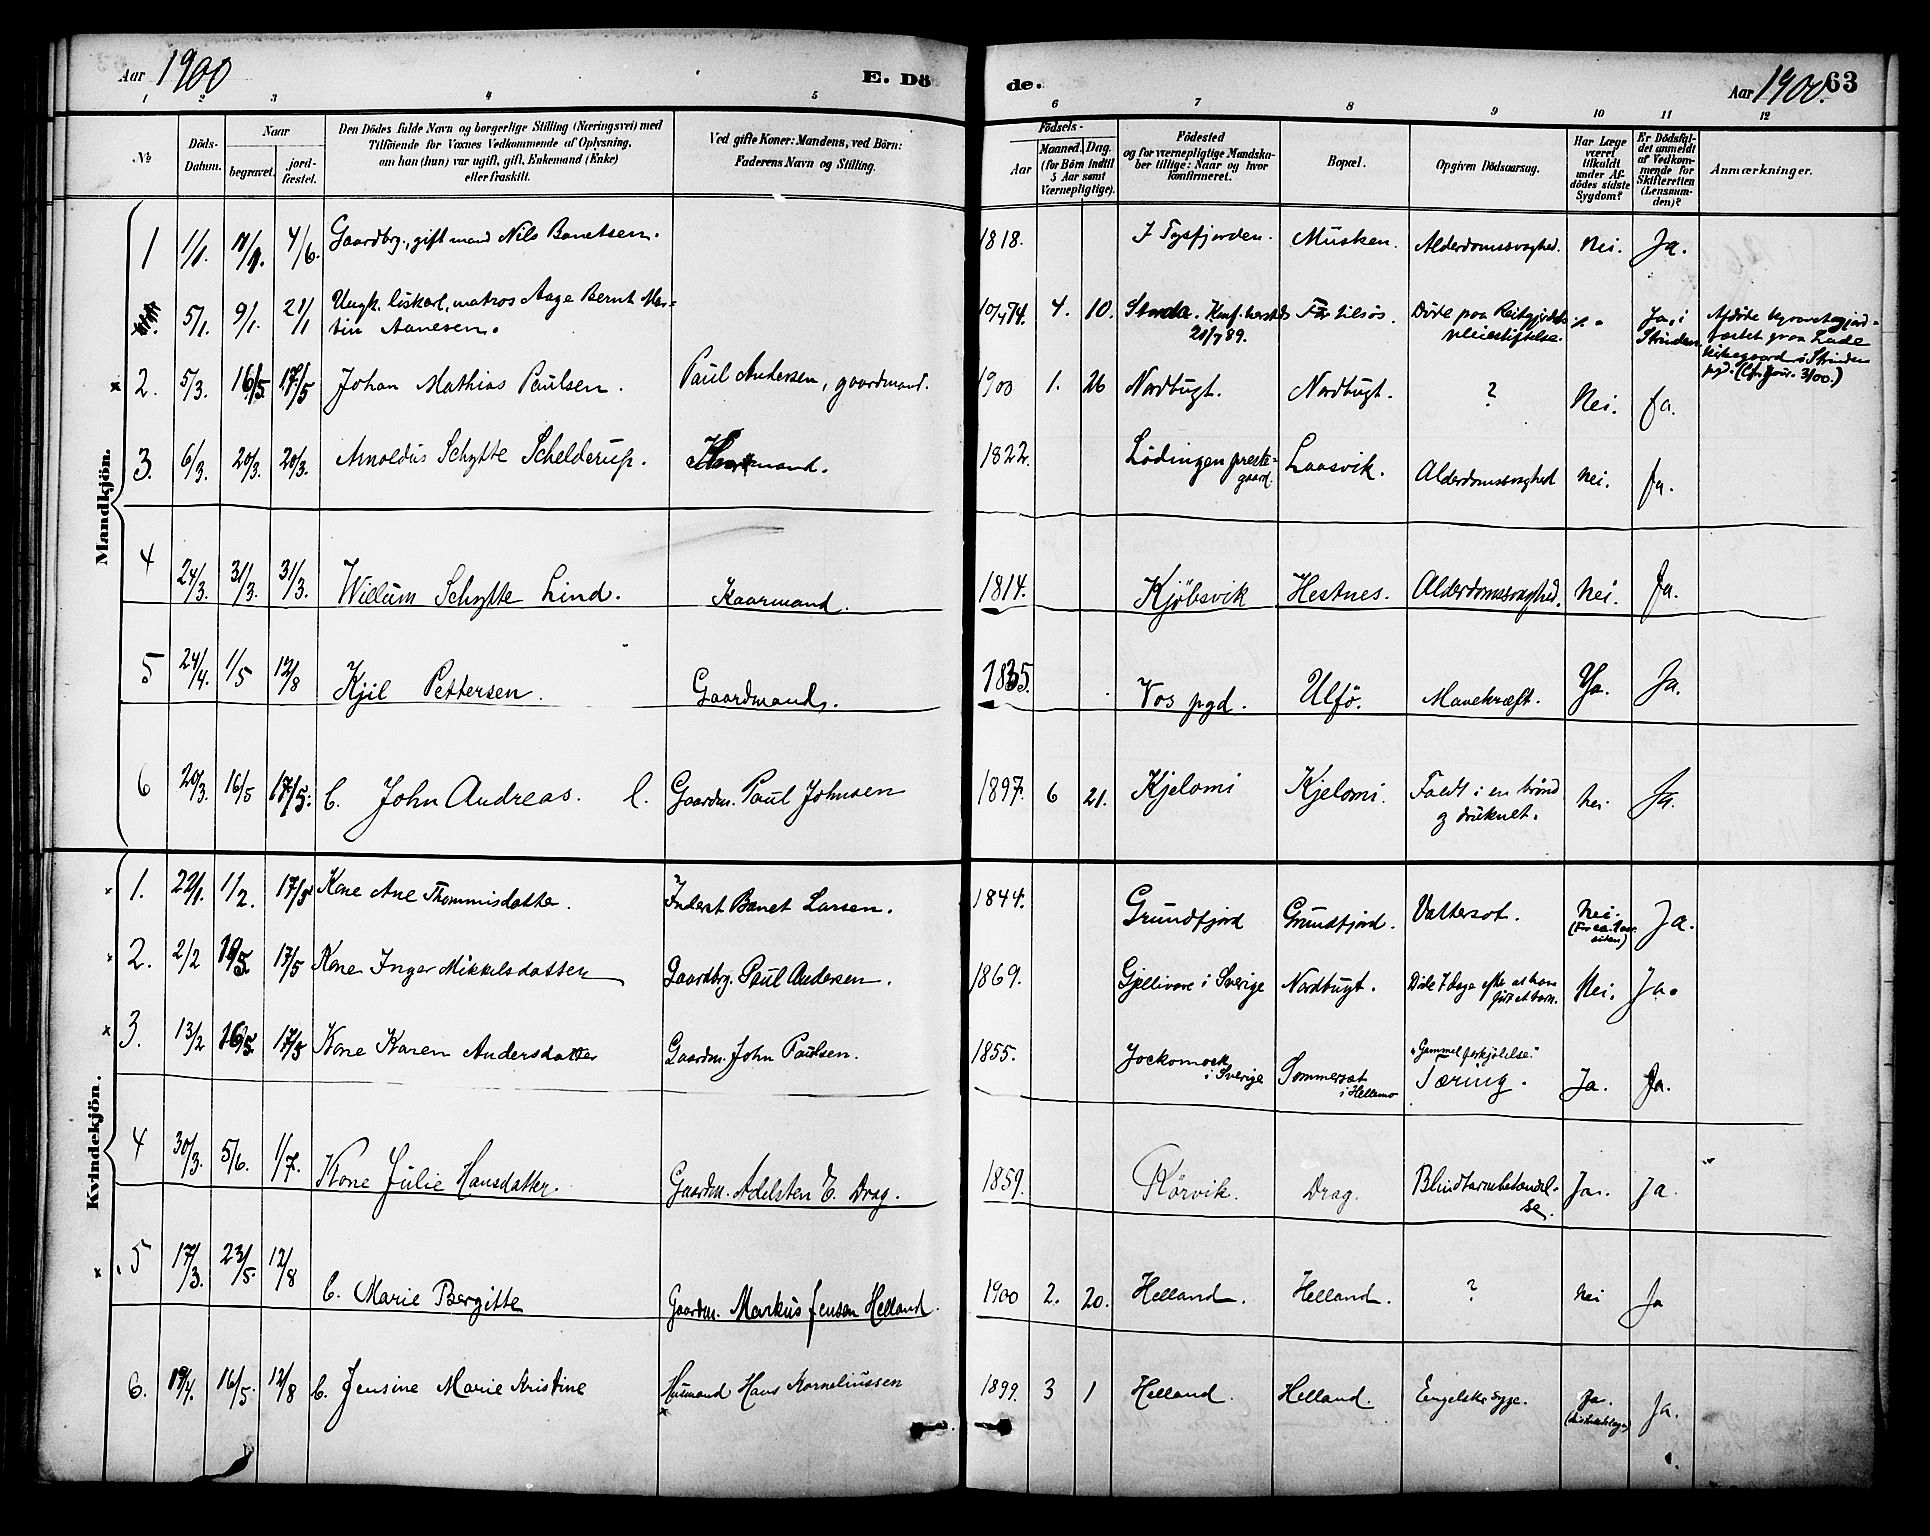 Aar 1900
E. Dö
de.
Aar 1900. 63
1 2 3 4 5 6 7 8 9 10 11 12
No.
Döds-Datum.
Naar
begravet.
jord-fæstet.
Den Dödes fulde Navn og borgerlige Stilling (Næringsvei) med
Tilföiende for Voxnes Vedkommende af Oplysning,
om han (hun) var ugift, gift, Enkemand (Enke)
eller fraskilt.
Ved gifte Koner: Mandens, ved Börn:
Faderens Navn og Stilling.
Födsels-
Aar
Maaned. Dag.
(for Börn indtil
5 Aar samt
Værnepligtige).
Födested
og for værnepligtige Mandska-
ber tillige: Naar og hvor
konfirmeret.
Bopæl.
Opgiven Dödsaarsag.
Har Læge
været
tilkaldt
under Af-
dödes sidste
Sygdom?
Er Dödsfal-
det anmeldt
af Vedkom-
mende for
Skifteretten
(Lensman-
den)?
Anmærkninger.
Mandkjön.
1 1/1. 4/6. Gaardbrg., gift mand Nils Banetsen. 1818. I Tysfjorden. Musken. Alderdomssvaghed. Nei. Ja.
5/1. 9/1. 21/1 Ungk. liskarl, matros Aage Bernt Mar-
tin Aanesen. 10/4 74. 4. 10. Döde paa Reitgjerdets
pleiestiftelse. Ja, i
Strinden.
Afdöde begravet og jord-
fæstet paa Lade
kirkegaard i Strinden
pgd. (Cfr. Jour. 3/00.)
2. 5/3. 16/5. 17/5 Johan Mathias Paulsen. Paul Andersen, gaardmand. 1900 1. 26 Nordbugt. Nordbugt. ? Nei. Ja.
3. 6/3. 20/3. 20/3. Arnoldus Schytte Schelderup. 1822. Lödingen preste-
gaard. Laasvik. Alderdomssvaghed Nei. Ja.
4 24/3. 31/3. 31/3. Wielum Schytte Lind. Kaarmand. 1814. Kjöbsvik Hestnes. Alderdomssvaghed. Nei. Ja.
5 24/4. 1/5 12/8 Kjil Pettersen. Gaardmand. 1835. Vos pgd. Ulfö. Mavekræft. Ja. Ja.
6 20/3. 16/5 17/5. b. John Andreas. Gaardm. Paul Johnsen 1897. 6 21. Kjelomi Kjelomi. Faldt i en brönd
og druknet. Nei Ja.
Kvindekjön.
1. 22/1. 1/2. 17/5 Kone Ane Thommisdatter. Inderst Banet Larsen. 1844. Grundfjord Grundfjord. Vattersot. Nei. Ja.
2. 2/2 17/5 Kone Inger Mikkelsdatter Gaardbrg. Paul Andersen. 1869. Gjellivare i Sverige Nordbugt. Döde 7 dage efter at have
födt et barn. Nei. Ja.
3. 13/2 16/5. 17/5 Kone Karen Andersdatter Gaardm. John Paulsen. 1855. Jockomock
i Sverige Sommersæt
i Hellemo "Gammel forkjölelse."
Tæring. Ja. Ja.
4 30/3. 5/6. 1/7. Kone Julie Hansdatter. Gaardm. Adelsten E. Drag. 1859. Körvik. Drag. Blindtarmbetændel-
se. Ja. Ja.
5 17/3. 23/5. 12/8 b. Marie Bergitte Gaardm. Markus Jensen Helland. 1900 2. 20. Helland. Helland. ? Nei Ja
6. 19/4. 16/5. 12/8 b. Jensine Marie Kristine Husmand Hans Korneliussen 1899. 3 1 Helland. Helland. Engelsk syge. Ja. Ja.